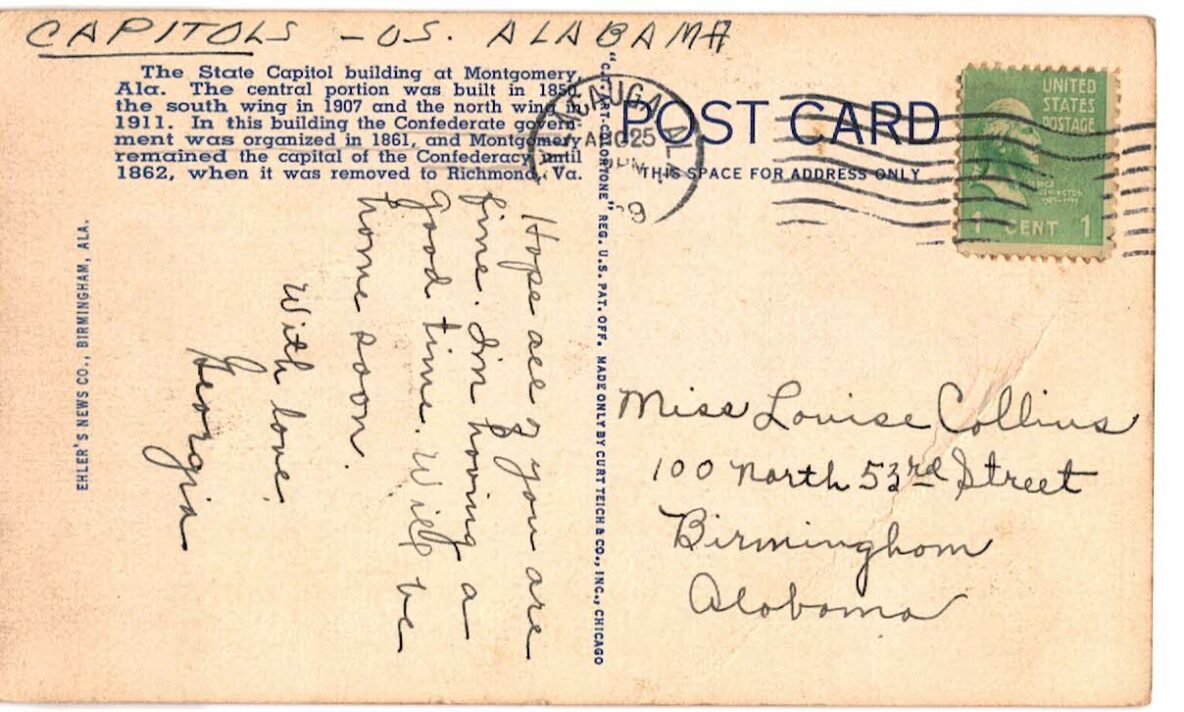 CAPITOLS - US. ALABAMA
The State Capitol building at Montgomery,
Ala. The central portion was built in 1850,
the south wing in 1907 and the north wing in
1911. In this building the Confederate govern-
ment was organized in 1861, and Montgomery
remained the capital of the Confederacy until
1862, when it was removed to Richmond, Va.
Hope all of you are
fine. I'm having a
good time. Will be
home soon.
With love,
Georgia
EHLER'S NEWS CO., BIRMINGHAM, ALA.
"C.T. ART-COLORTONE" REG. U.S. PAT. OFF. MADE ONLY BY CURT TEICH & CO., INC., CHICAGO
POST CARD
THIS SPACE FOR ADDRESS ONLY
AUG 25
PM
ALA.
UNITED
STATES
POSTAGE
WASHINGTON
1 CENT 1
Miss Louise Collins
100 North 53rd Street
Birmingham
Alabama